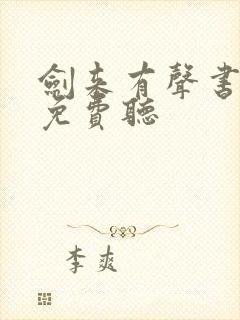 劍来有聲书
免費聽
李爽